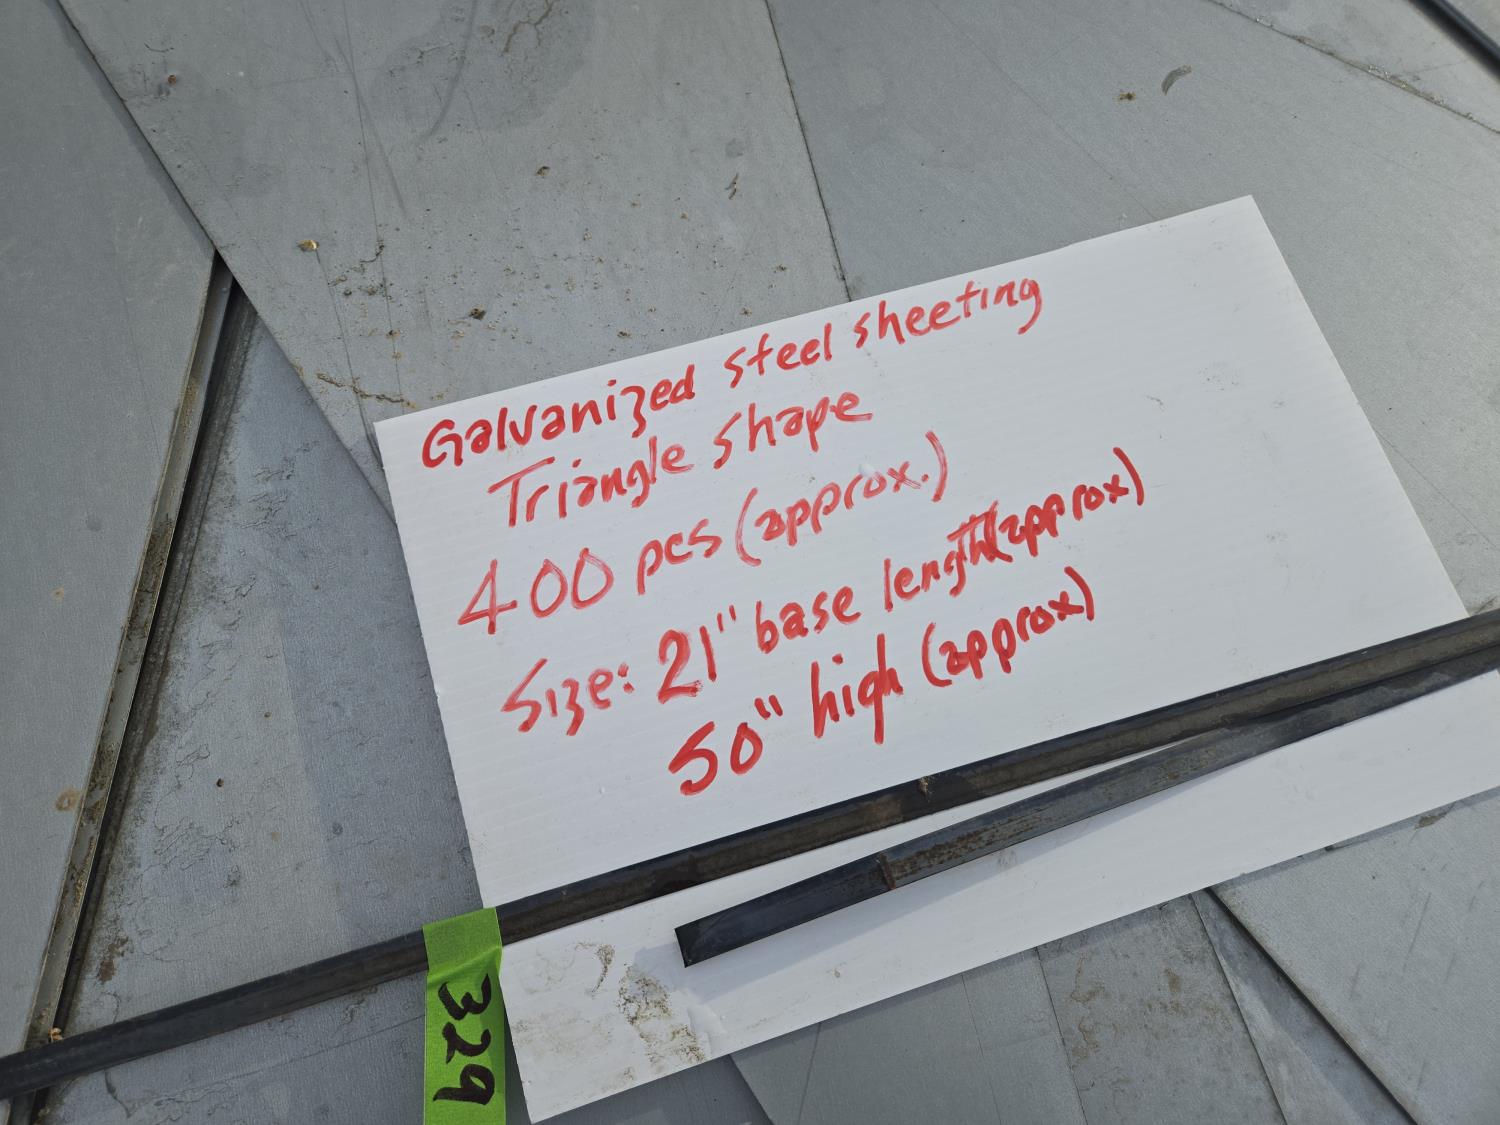 Galvanized steel sheeting
Triangle shape
400 pcs (approx.)
Size: 21" base length (approx)
50" high (approx)
329